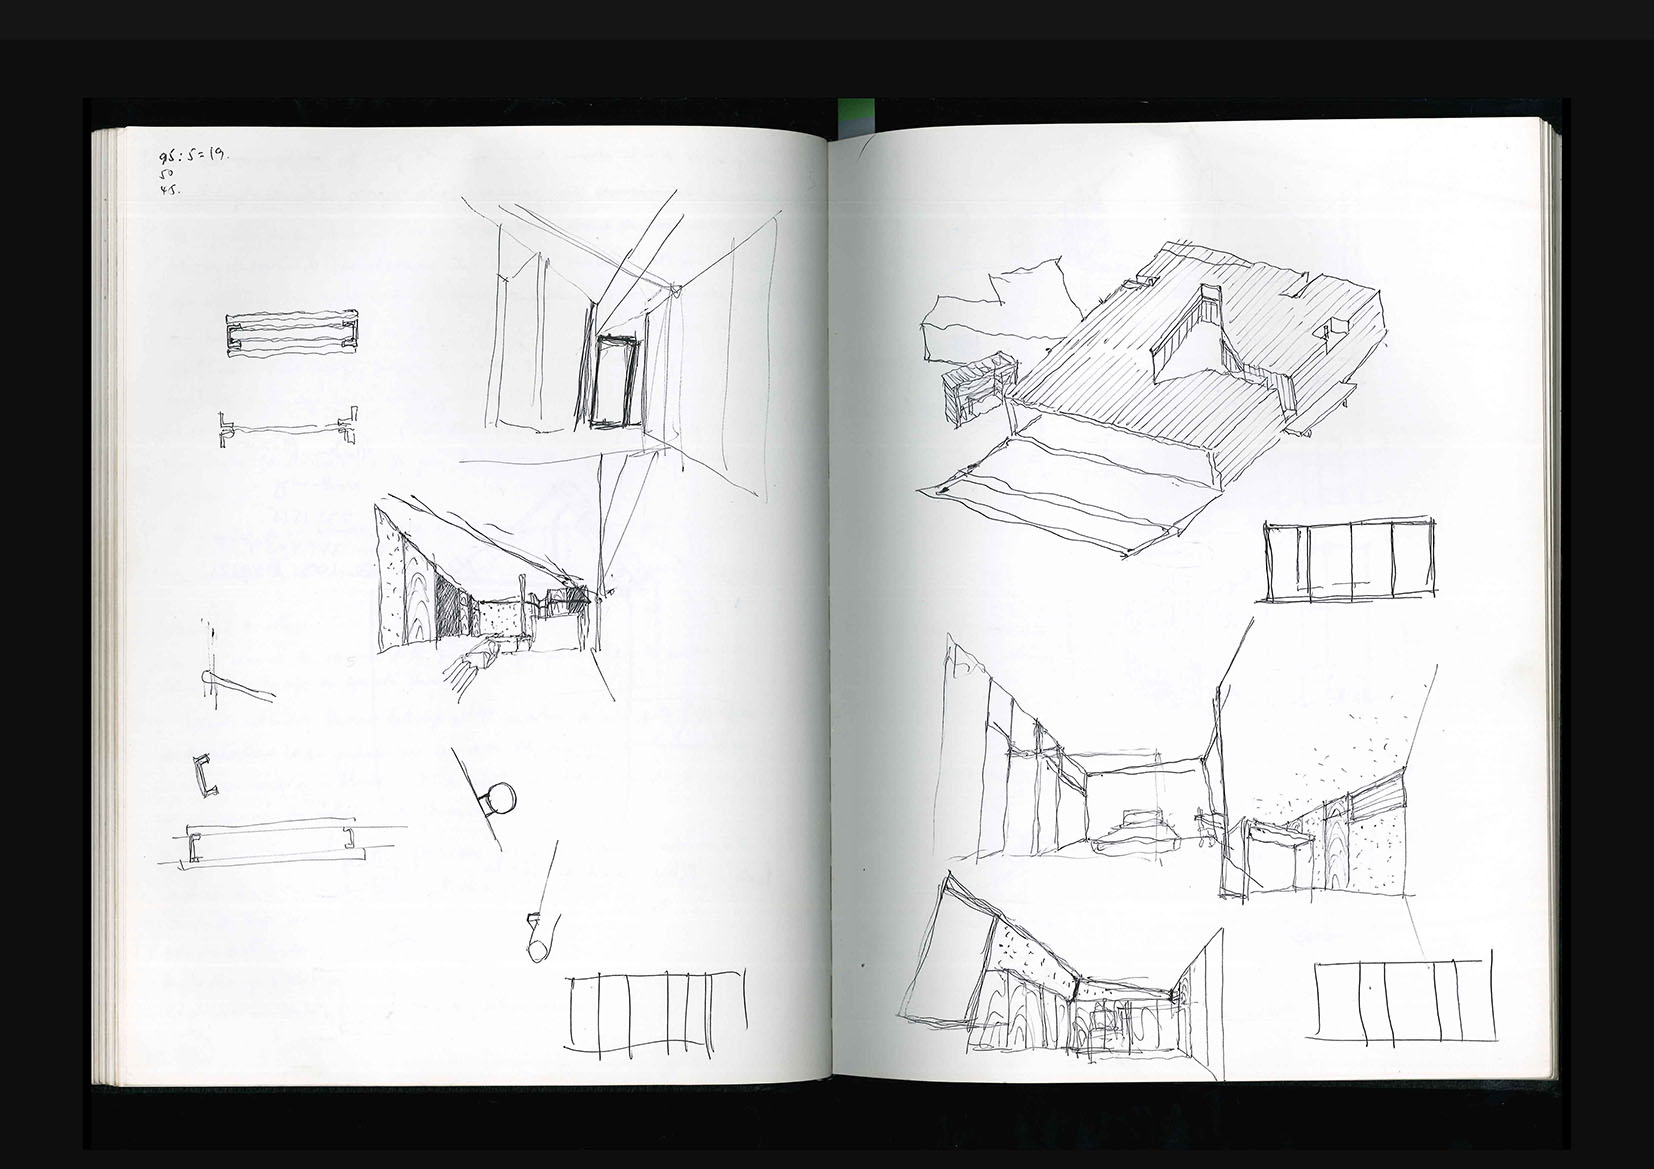 95:5=19.
50
45.